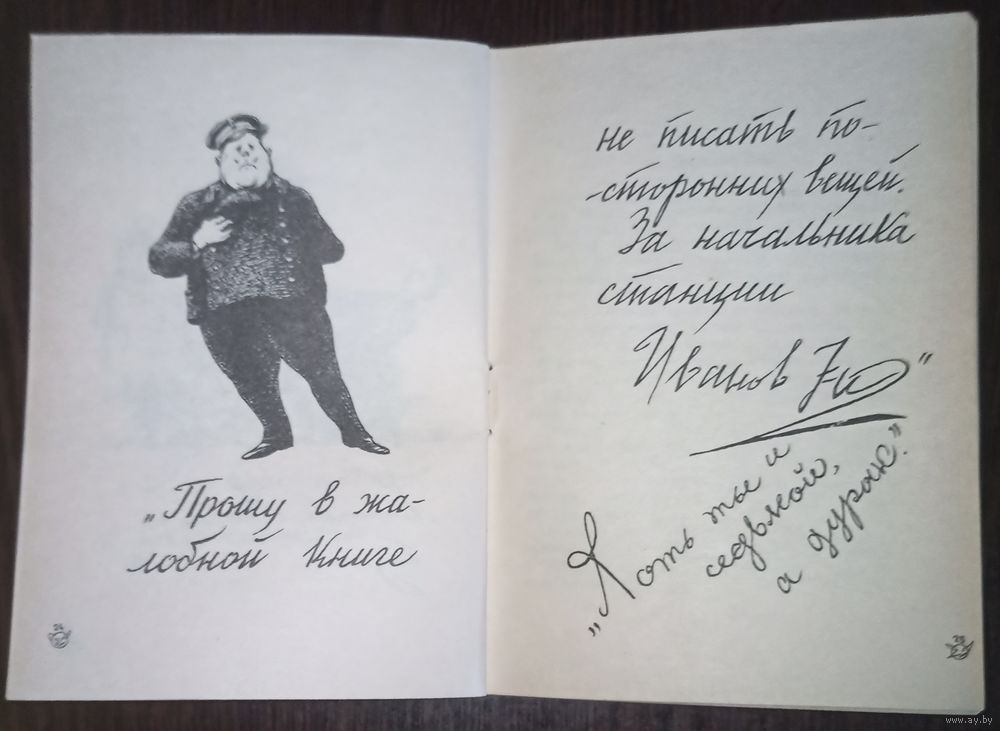 „Прошу в жа-
лобной книге
24
не писать по-
-сторонних вещей.
За начальника
станции
Иванов 7-й"
„Хоть ты и
седьмой,
а дурак."
25
www.ay.by